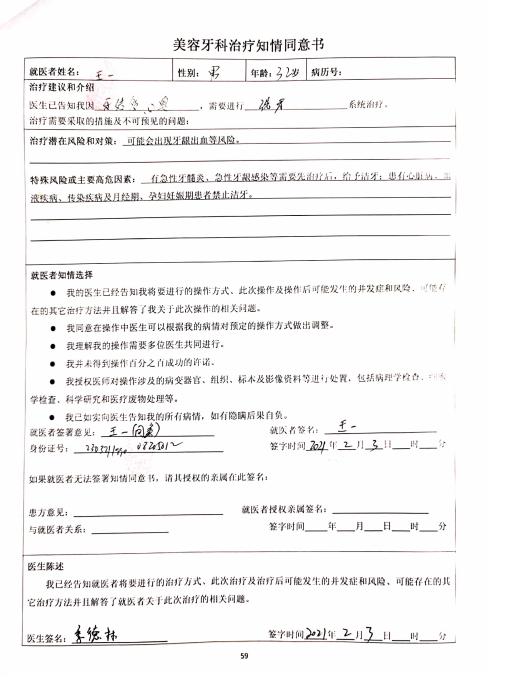 美容牙科治疗知情同意书
就医者姓名： 王一 性别： 男 年龄：32岁 病历号：
治疗建议和介绍
医生已告知我因 ，需要进行 系统治疗。
治疗需要采取的措施及不可预见的问题：
治疗潜在风险和对策： 可能会出现牙龈出血等风险。
特殊风险或主要高危因素： 有急性牙髓炎、急性牙龈感染等需要先治疗后，给予洁牙；患有心脏病、血
液疾病、传染疾病及月经期、孕妇妊娠期患者禁止洁牙。
就医者知情选择
● 我的医生已经告知我将要进行的操作方式、此次操作及操作后可能发生的并发症和风险、可能存
在的其它治疗方法并且解答了我关于此次操作的相关问题。
● 我同意在操作中医生可以根据我的病情对预定的操作方式做出调整。
● 我理解我的操作需要多位医生共同进行。
● 我并未得到操作百分之百成功的许诺。
● 我授权医师对操作涉及的病变器官、组织、标本及影像资料等进行处置，包括病理学检查、细胞
学检查、科学研究和医疗废物处理等。
● 我已如实向医生告知我的所有病情，如有隐瞒后果自负。
就医者签署意见： 王一(同意) 就医者签名： 王一
身份证号： 签字时间2021年2月3日 时 分
如果就医者无法签署知情同意书，请其授权的亲属在此签名：
患方意见： 就医者授权亲属签名：
与就医者关系： 签字时间 年 月 日 时 分
医生陈述
我已经告知就医者将要进行的治疗方式、此次治疗及治疗后可能发生的并发症和风险、可能存在的其
它治疗方法并且解答了就医者关于此次治疗的相关问题。
医生签名： 李德林 签字时间2021年2月3日 时 分
59